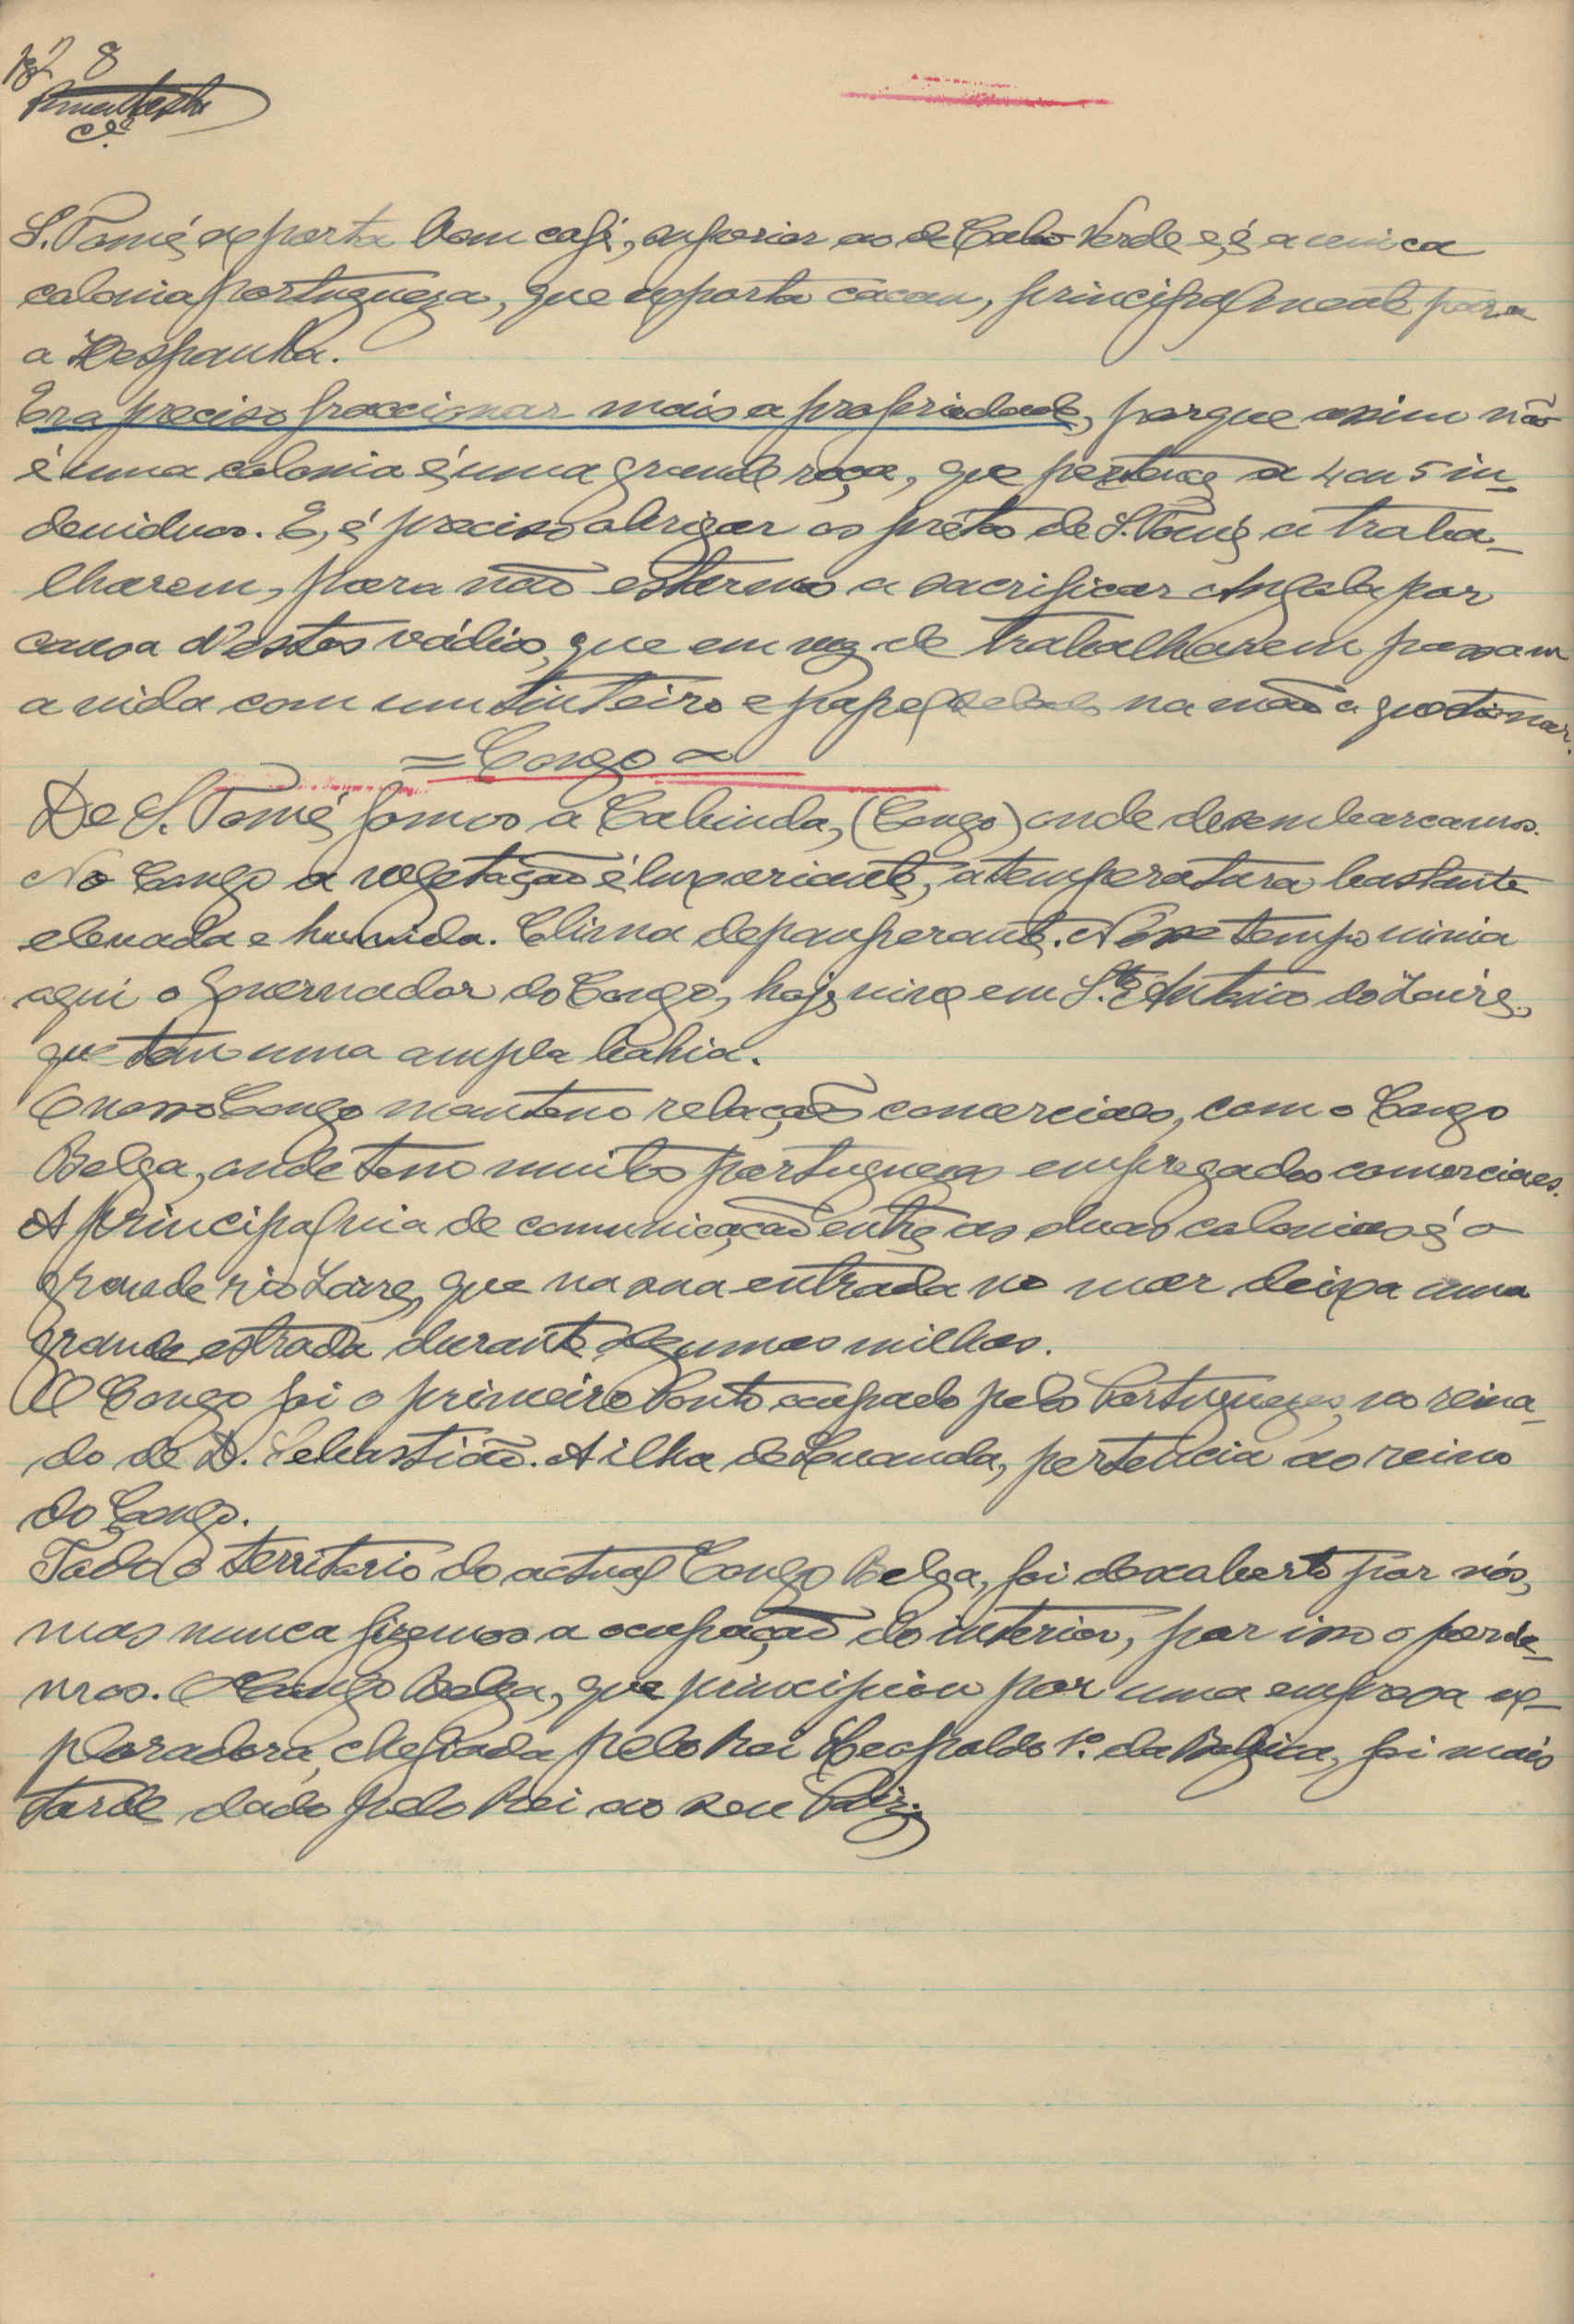 8
S. Tomé, exporta bom café, superior ao de Cabo Verde e, é a unica
colonia portugueza, que exporta cacau, principalmente para
a Hespanha.
Era preciso fraccionar mais a propriedade, porque assim não
é uma colonia é uma grande roça, que pertence a 4 ou 5 in-
deviduos. E, é preciso obrigar os prêtos de S. Tomé, a traba-
lharem, para não estarmos a sacrificar Angola por
causa d'estes vádios, que em vez de trabalharem passam
a vida com um tinteiro e papel selado na mão a questionar.
= Congo =
De S. Tomé, fomos a Cabinda, (Congo) onde desembarcamos.
No Congo a vegetação é luxuriante, a temperatura bastante
elevada e humida. Clima depauperante. Nesse tempo vivia
aqui o Governador do Congo, hoje vive em S.to Antonio do Zaire,
que tem uma ampla bahia.
O nosso Congo mantem relações comerciaes, com o Congo
Belga, onde tem muitos portuguezes empregados comerciaes.
A principal via de comunicação entre as duas colonias é o
grande rio Zaire, que na sua entrada no mar deixa uma
grande estrada durante algumas milhas.
O Congo foi o primeiro Ponto ocupado pelos Portuguezes, no reina-
do de D. Sebastião. A ilha de Luanda, pertencia ao reino
do Congo.
Todo o territorio do actual Congo Belga, foi descoberto por nós,
mas nunca fizemos a ocupação do interior, por isso o perde-
mos. O Congo Belga, que principiou por uma empresa ex-
ploradora, chefiada pelo Rei Leopoldo 1.º da Belgica, foi mais
tarde dado pelo Rei ao seu Paiz.